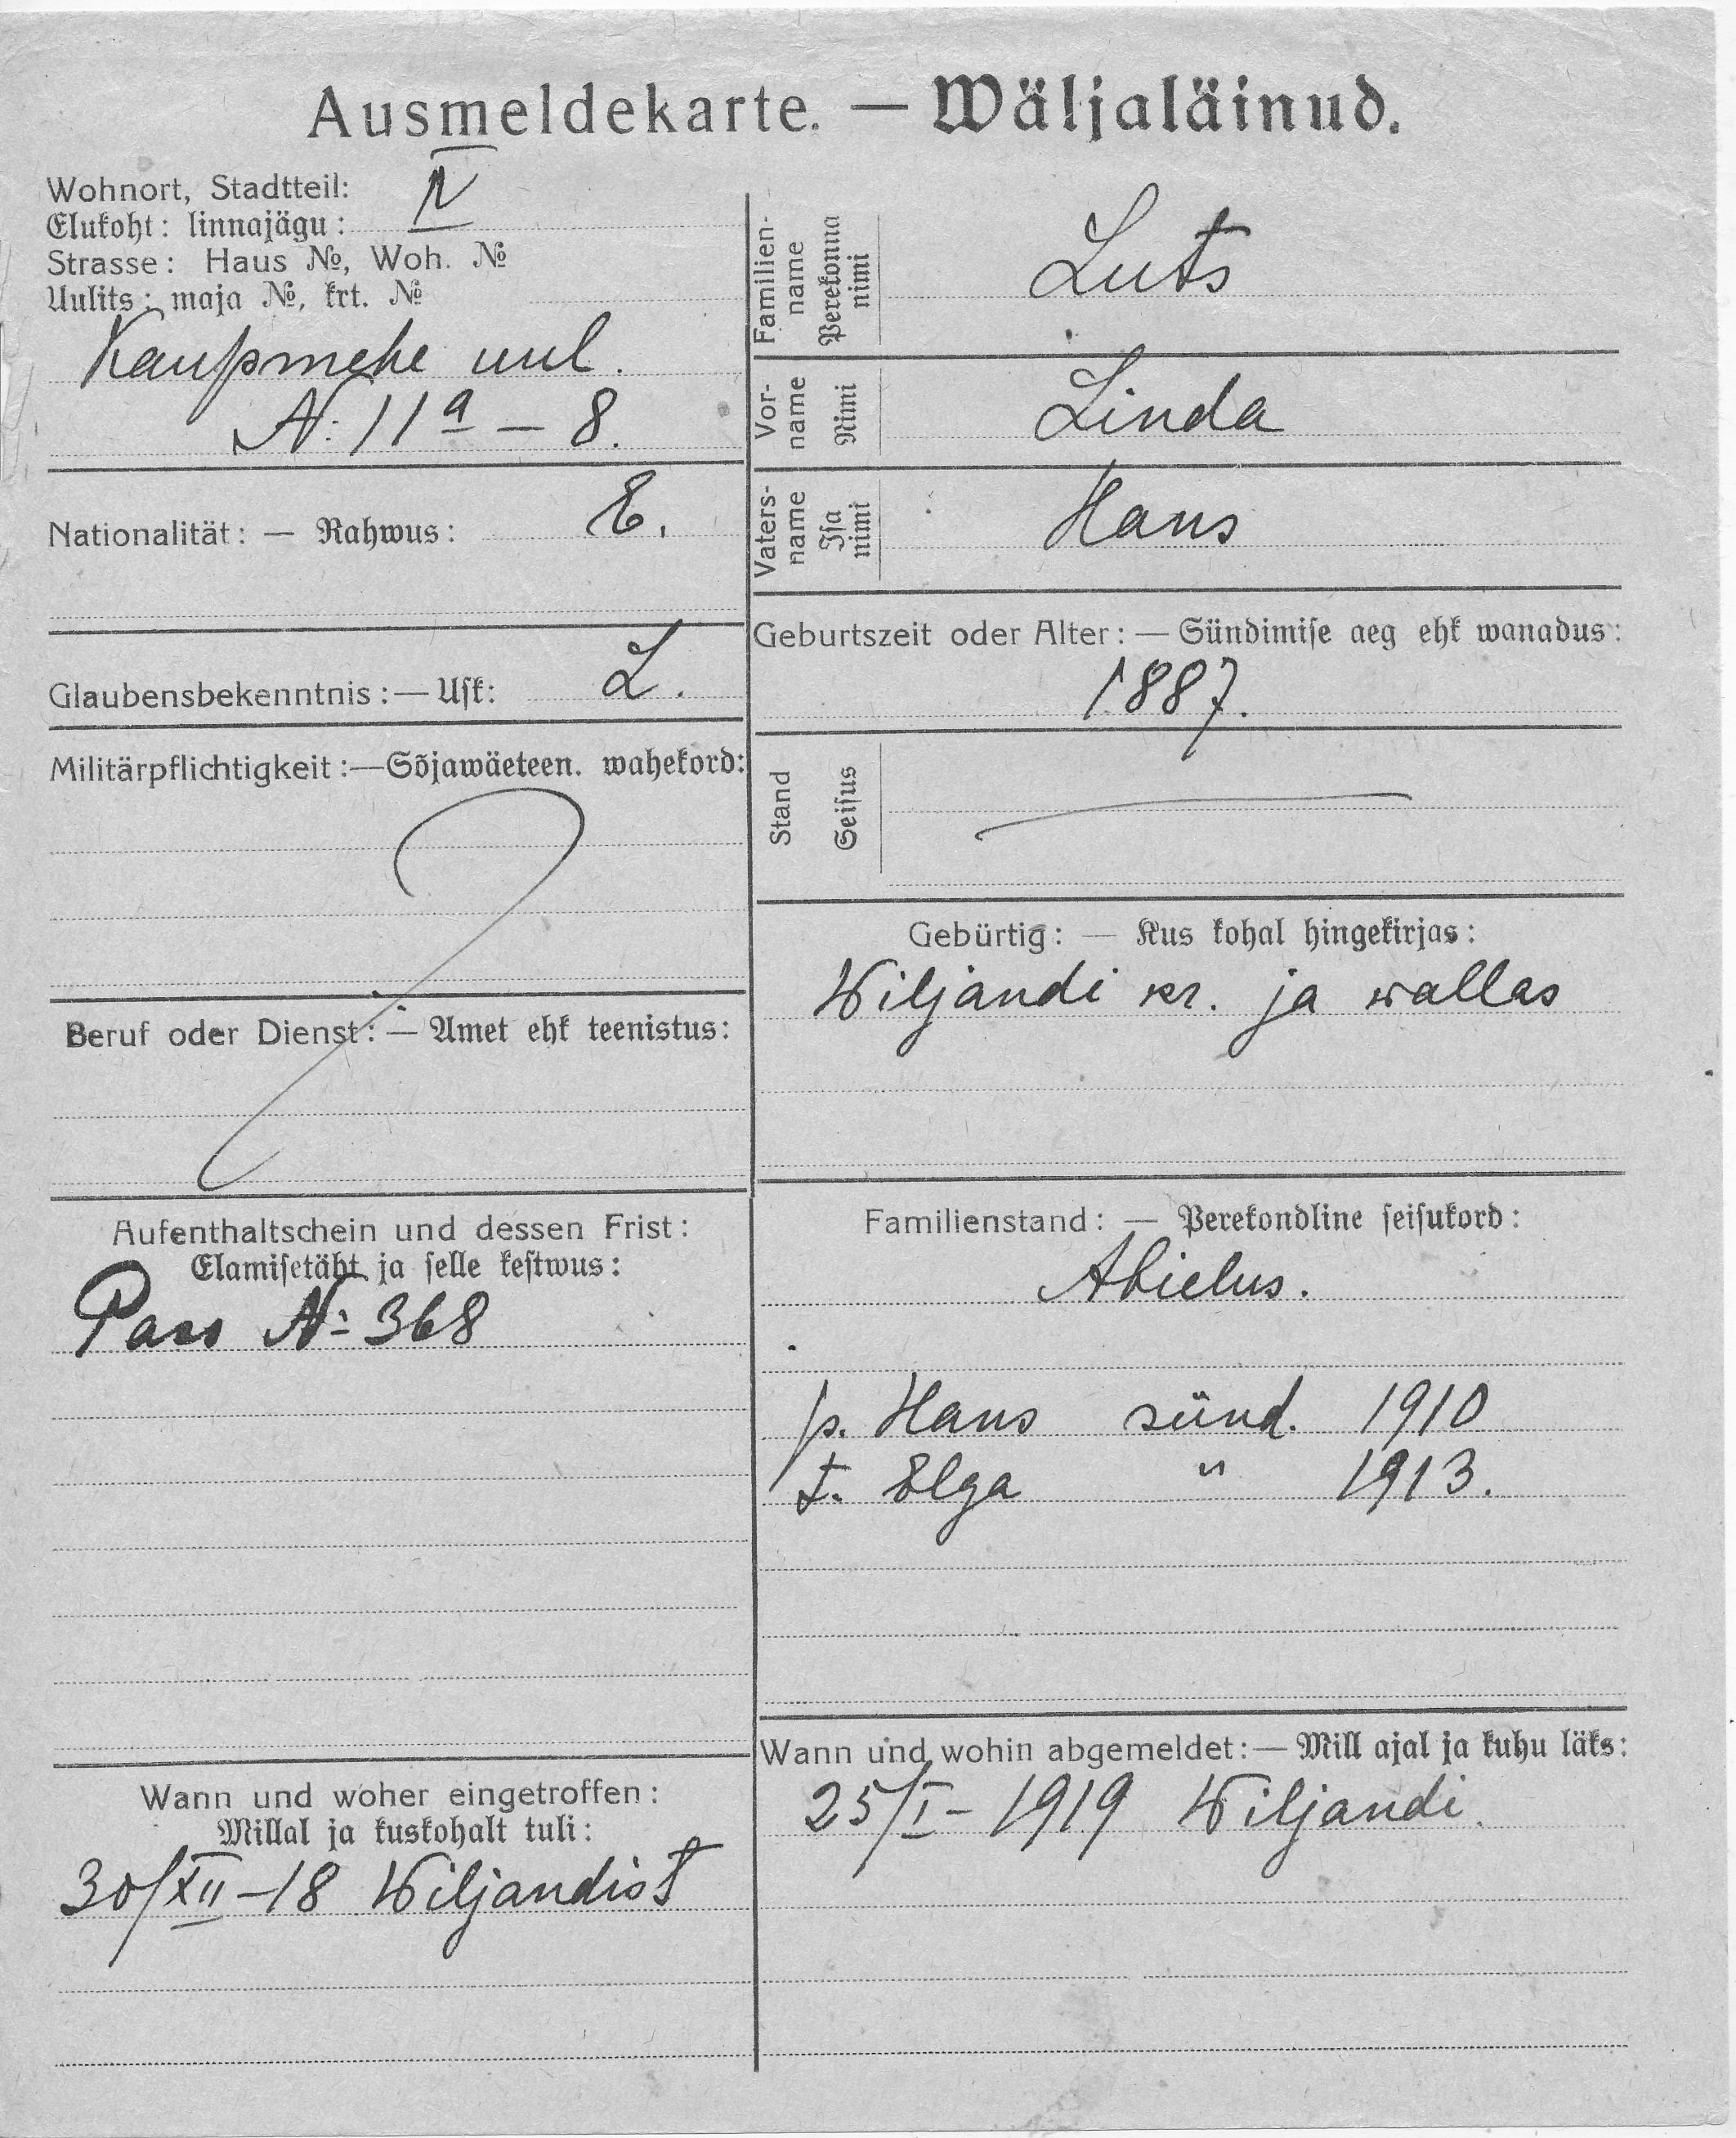 Ausmeldekarte. — Wäljaläinud.
Wohnort, Stadtteil:
Elukoht: linnajägu: IV
Strasse: Haus №, Woh. №
Uulits: maja №, krt. №
Kaupmehe uul.
N: 11a – 8.
Nationalität: — Rahwus: E.
Glaubensbekenntnis: — Usk: L.
Militärpflichtigkeit: — Sõjawäeteen. wahekord:
Beruf oder Dienst: — Amet ehk teenistus:
Aufenthaltschein und dessen Frist:
Elamisetäht ja selle kestwus:
Pass N: 368
Wann und woher eingetroffen:
Millal ja kuskohalt tuli:
30/XII–18 Wiljandist
Familien-
name
Perekonna
nimi
Luts
Vor-
name
Nimi
Linda
Vaters-
name
Isa
nimi
Hans
Geburtszeit oder Alter: — Sündimise aeg ehk wanadus:
1887.
Stand
Seisus
Gebürtig: — Kus kohal hingekirjas:
Wiljandi kr. ja wallas
Familienstand: — Perekondline seisukord:
Abielus.
p. Hans sünd. 1910
t. Elga " 1913.
Wann und wohin abgemeldet: — Mill ajal ja kuhu läks:
25/I – 1919 Wiljandi.